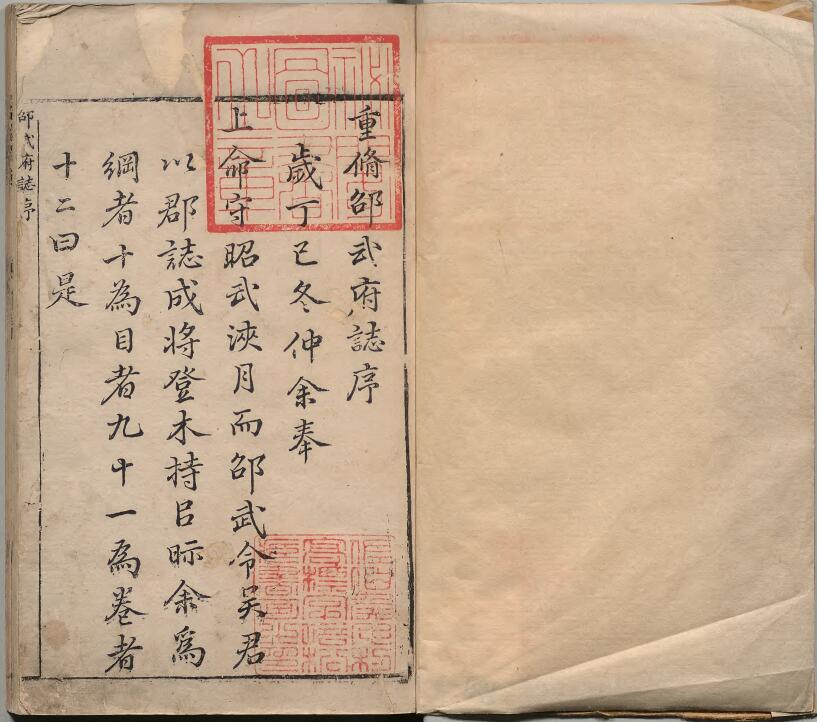 重脩邵武府誌序
歲丁巳冬仲余奉
上命守昭武浹月而邵武令吳君
以郡誌成將登木持㠯眎余為
綱者十為目者九十一為卷者
十二曰是
邵武府誌序